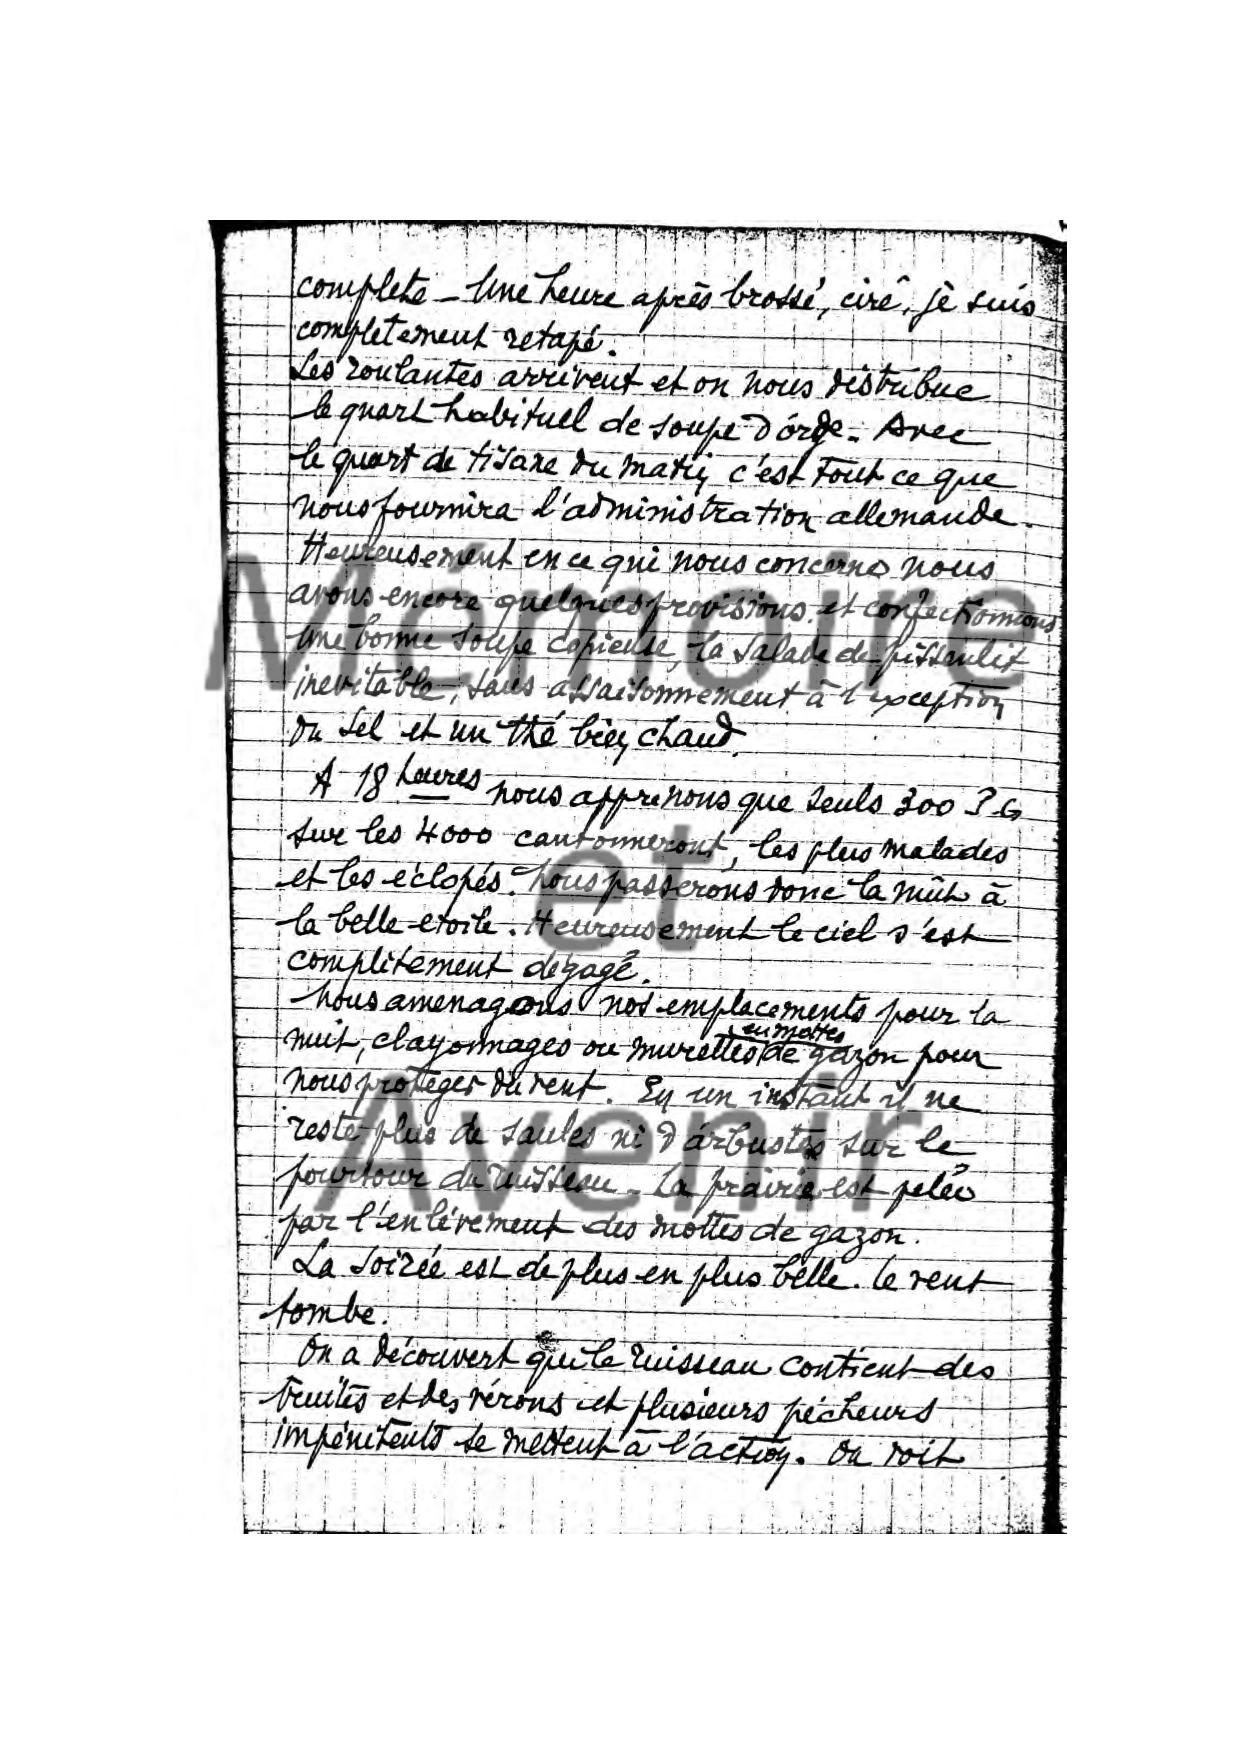 complète - Une heure après brossé, ciré, je suis
complètement retapé.
Les roulantes arrivent et on nous distribue
le quart habituel de soupe d'orge. Avec
le quart de tisane du matin c'est tout ce que
nous fournira l'administration allemande.
Heureusement en ce qui nous concerne nous
avons encore quelques provisions et confectionnons
une bonne soupe copieuse, la salade de pissenlit
inévitable, sans assaisonnement à l'exception
du sel et un thé bien chaud.
A 18 heures nous apprenons que seuls 300 P.G
sur les 4000 cantonneront, les plus malades
et les éclopés. Nous passerons donc la nuit à
la belle étoile. Heureusement le ciel s'est
complètement dégagé.
Nous aménageons nos emplacements pour la
en mottes
nuit, clayonnages ou murettes de gazon pour
nous protéger du vent. En un instant il ne
reste plus de saules ni d'arbustes sur le
pourtour du ruisseau. La prairie est pelée
par l'enlèvement des mottes de gazon.
La soirée est de plus en plus belle. le vent
tombe.
On a découvert que le ruisseau contient des
truites et des vérons et plusieurs pécheurs
impénitents se mettent à l'action. On voit
Mémoire
et
Avenir